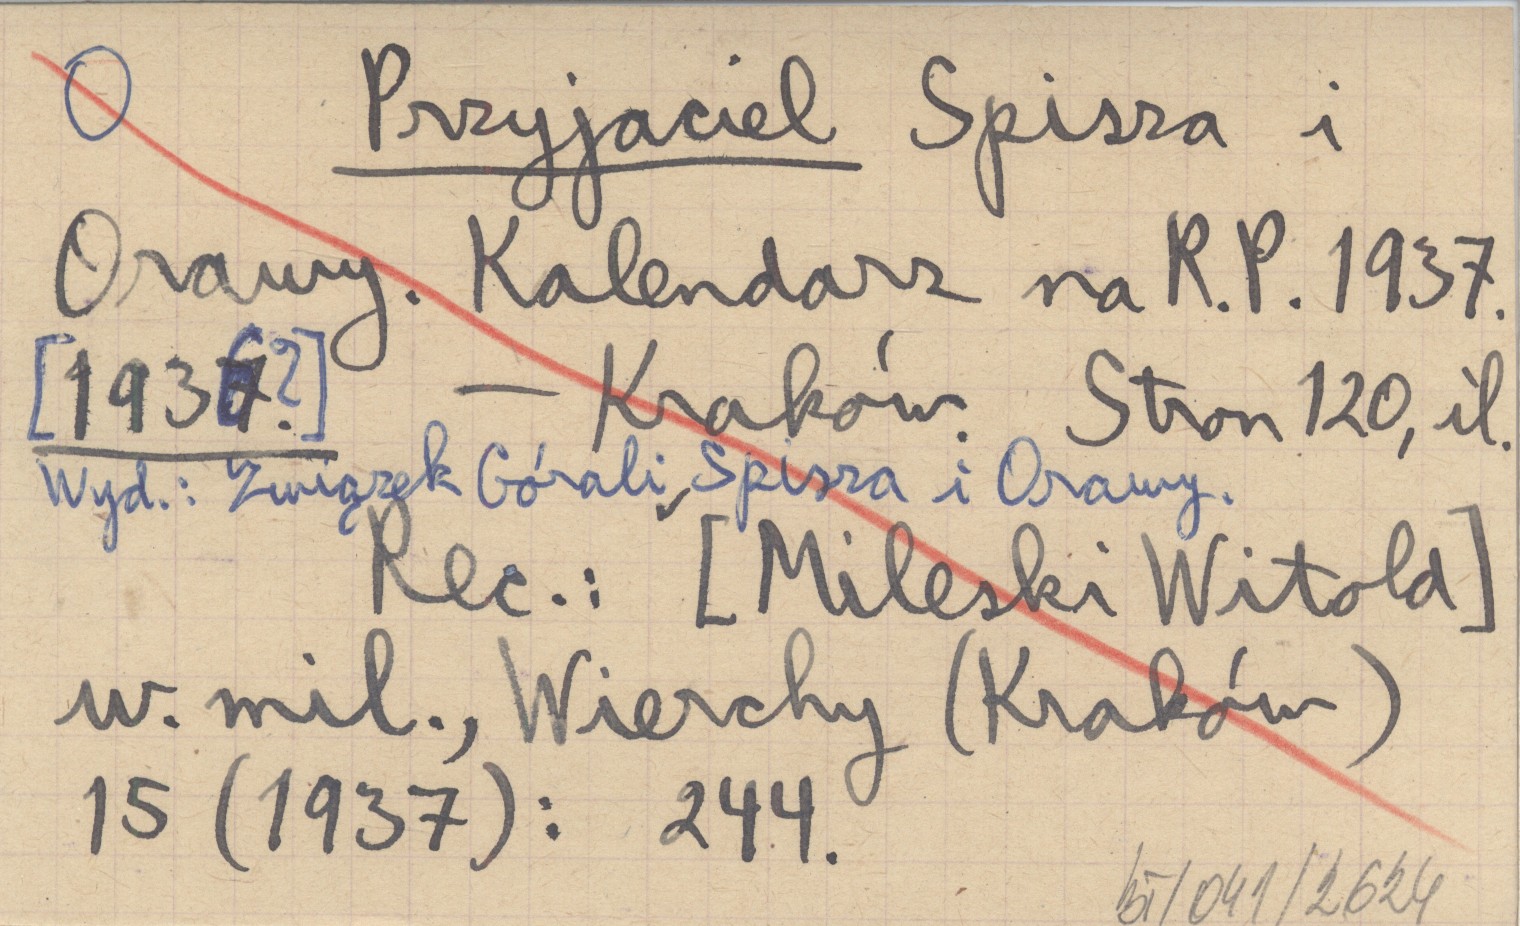 O Przyjaciel Spisza i
Orawy. Kalendarz na R.P. 1937.
[1936?] — Kraków. Stron 120, il.
Wyd.: Związek Górali Spisza i Orawy.
Rec.: [Mileski Witold]
w. mil., Wierchy (Kraków)
15 (1937): 244.
/041/2624